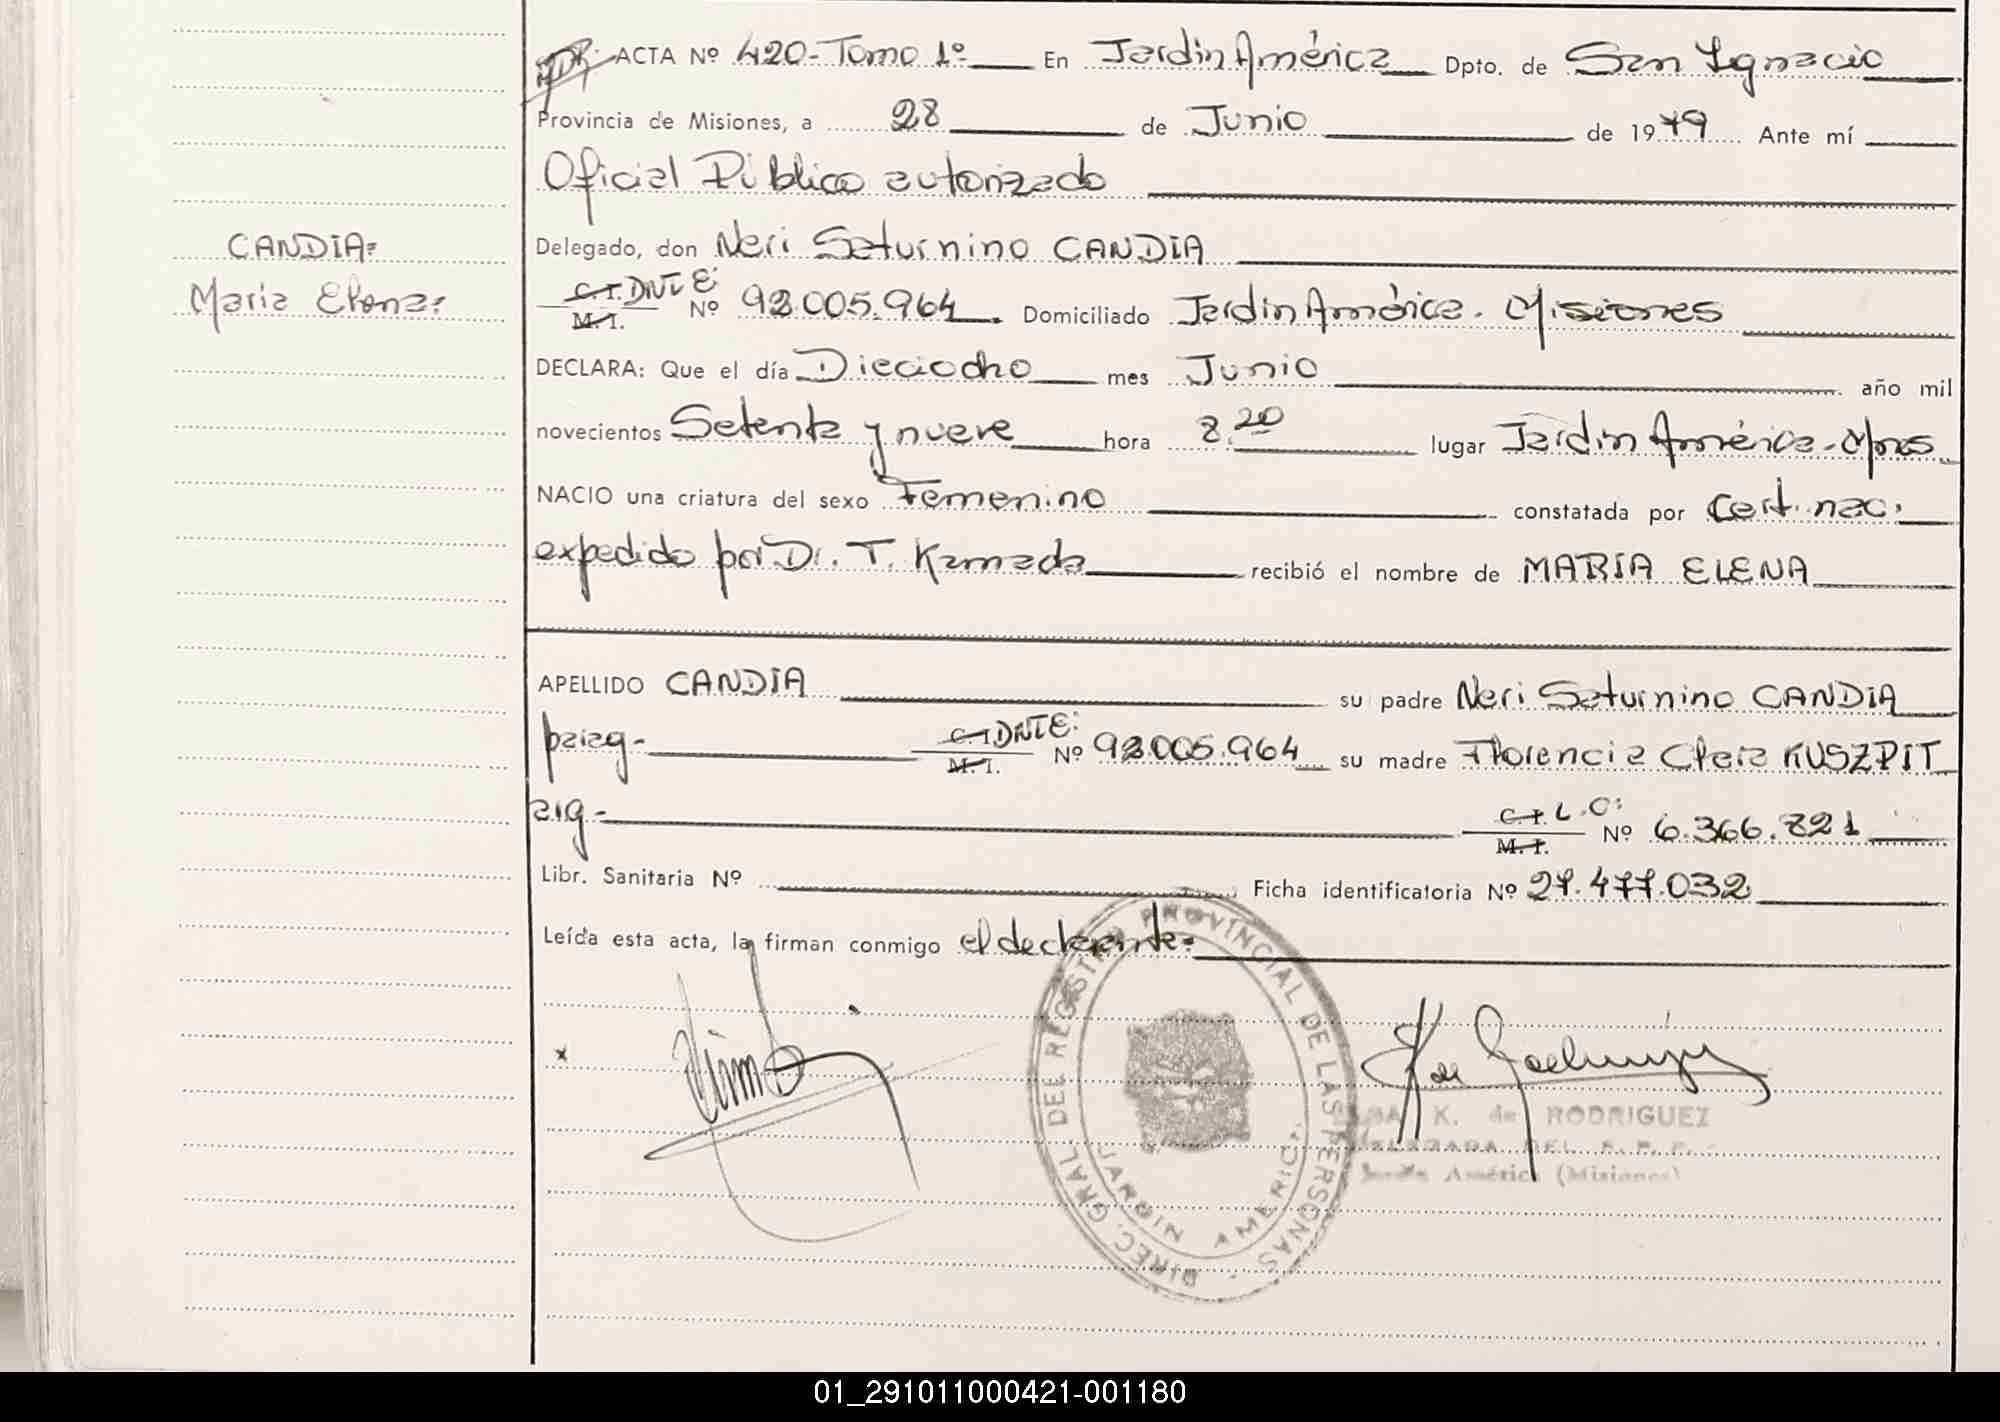 ACTA Nº 420-Tomo 1º En Jardin América Dpto. de San Ignacio
Provincia de Misiones, a 28 de Junio de 1979 Ante mí
Oficial Público autorizado
CANDIA= Delegado, don Neri Saturnino CANDIA
Maria Elena: C.I. DNI E: M.I. Nº 92.005.964 Domiciliado Jardin América. Misiones
DECLARA: Que el día Dieciocho mes Junio año mil
novecientos Setenta y nueve hora 8.20 lugar Jardin América-Mnes
NACIO una criatura del sexo Femenino constatada por Cert. nac.
expedido por Dr. T. Kamada recibió el nombre de MARIA ELENA
APELLIDO CANDIA su padre Neri Saturnino CANDIA
parag- C.I DNI E: M.I. Nº 92.005.964 su madre Florencia Clara KUSZPIT
arg- C.I. L.C: M.I. Nº 6.366.821
Libr. Sanitaria Nº Ficha identificatoria Nº 27.477.032
Leída esta acta, la firman conmigo el declarante=
x
DIREC. GRAL. DEL REGISTRO PROVINCIAL DE LAS PERSONAS
JARDIN AMERICA
K. de RODRIGUEZ
DELEGADA DEL R. P. P.
Jardín América (Misiones)
01_291011000421-001180